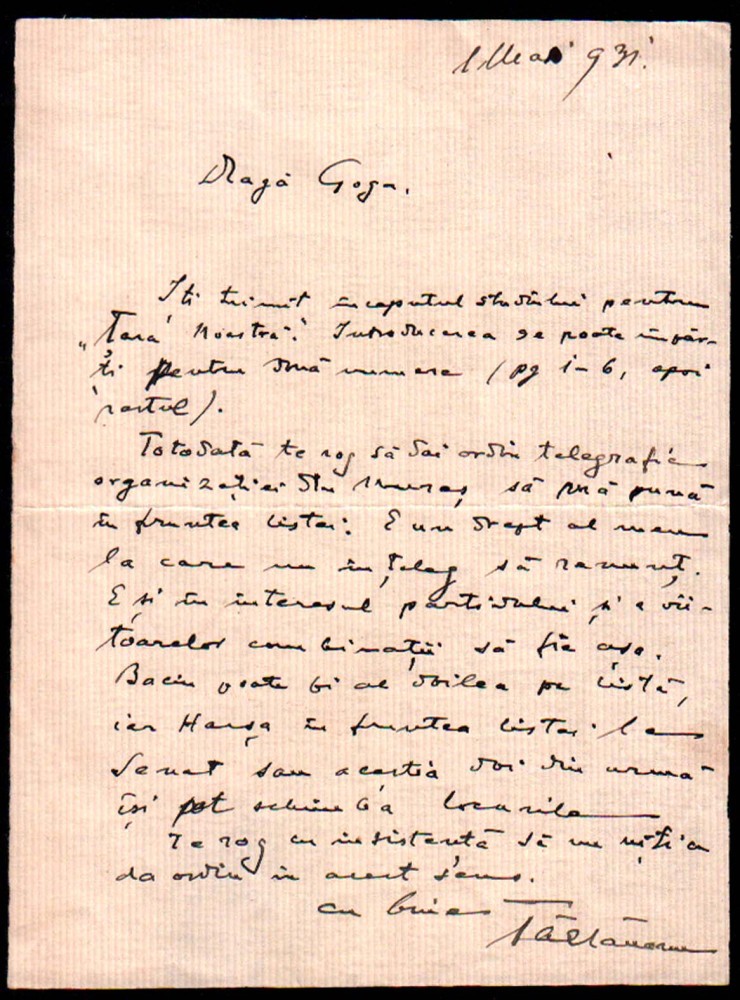 1 Mai 931.
Dragă Goga,
Iți trimit începutul studiului pentru
„Țara Noastră". Introducerea se poate împăr-
ți pentru două numere (pg 1-6, apoi
restul).
Totodată te rog să dai ordin telegrafic
organizației din Mureș, să mă pună
în fruntea listei. E un drept al meu
la care nu înțeleg să renunț.
E și în interesul partidului și a vii-
toarelor combinații să fie așa.
Baciu poate fi al doilea pe listă,
iar Harșa în fruntea listei la
Senat sau aceștia doi din urmă
iși pot schimba locurile
Te rog cu insistență să nu uiți a
da ordin in acest sens.
cu bine
Tăslăuanu